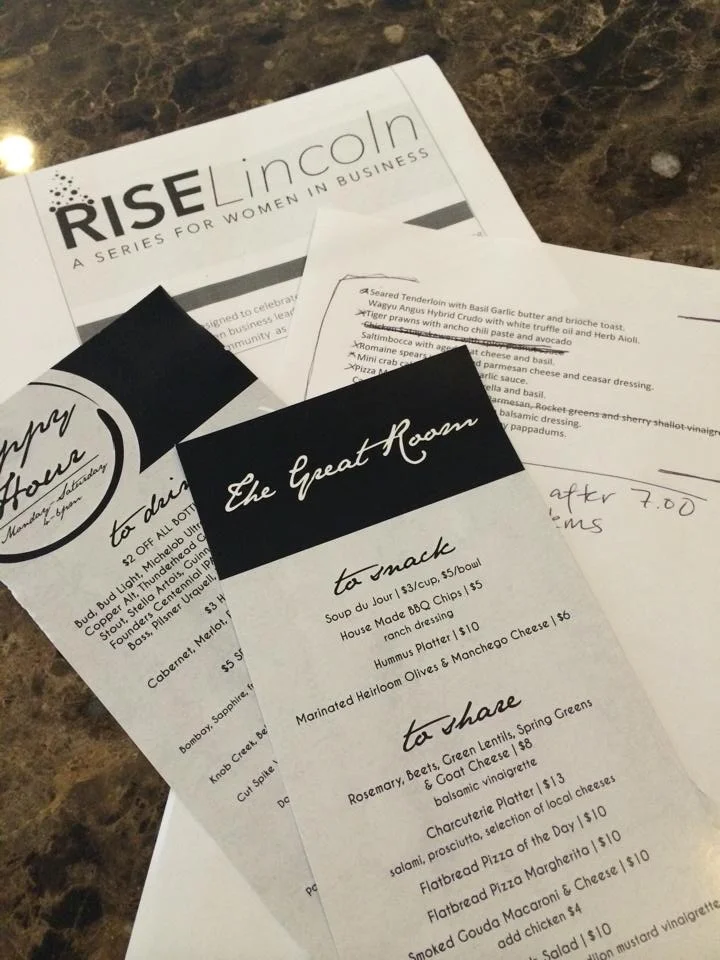 RISELincoln
A SERIES FOR WOMEN IN BUSINESS
signed to celebrate
en business lea
mmunity as
Seared Tenderloin with Basil Garlic butter and brioche toast.
Wagyu Angus Hybrid Crudo with white truffle oil and Herb Aioli.
Tiger prawns with ancho chili paste and avocado
Chicken Satay skewers with spicy peanut sauce
Saltimbocca with age at cheese and basil.
Romaine spears d parmesan cheese and ceasar dressing.
Mini crab ca arlic sauce.
Pizza M ella and basil.
Parmesan, Rocket greens and sherry shallot vinaigre
balsamic dressing.
y pappadums.
after 7.00
ems
ppy
Hour
Monday-Saturday
4-6pm
to drin
$2 OFF ALL BOTT
Bud, Bud Light, Michelob Ultr
Copper Alt, Thunderhead C
Stout, Stella Artois, Guinn
Founders Centennial IPA
Bass, Pilsner Urquell,
$3 H
Cabernet, Merlot,
$5 S
Bombay, Sapphire,
Knob Creek, Be
Cut Spike
The Great Room
to snack
Soup du Jour | $3/cup, $5/bowl
House Made BBQ Chips | $5
ranch dressing
Hummus Platter | $10
Marinated Heirloom Olives & Manchego Cheese | $6
to share
Rosemary, Beets, Green Lentils, Spring Greens
& Goat Cheese | $8
balsamic vinaigrette
Charcuterie Platter | $13
salami, prosciutto, selection of local cheeses
Flatbread Pizza of the Day | $10
Flatbread Pizza Margherita | $10
Smoked Gouda Macaroni & Cheese | $10
add chicken $4
Salad | $10
dijon mustard vinaigrette